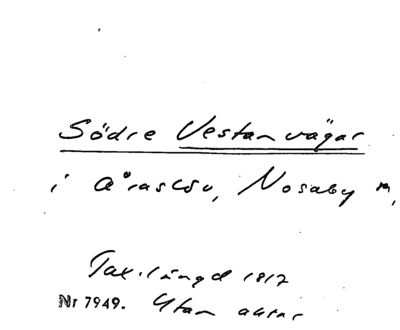 Södre Vestanvägar
i Åraslöv, Nosaby m,
Tax.längd 1817
Nr 7949. Utan aktnr